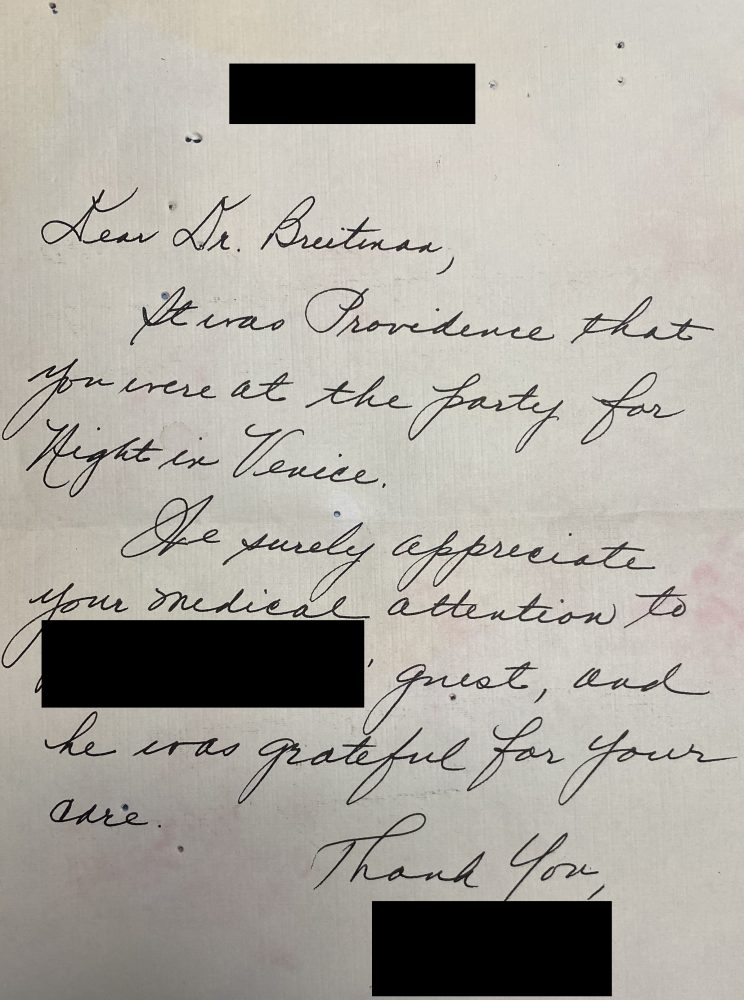 Dear Dr. Breitman,
It was Providence that
you were at the party for
Night in Venice.
We surely appreciate
your medical attention to
' guest, and
he was grateful for your
care.
Thank You,